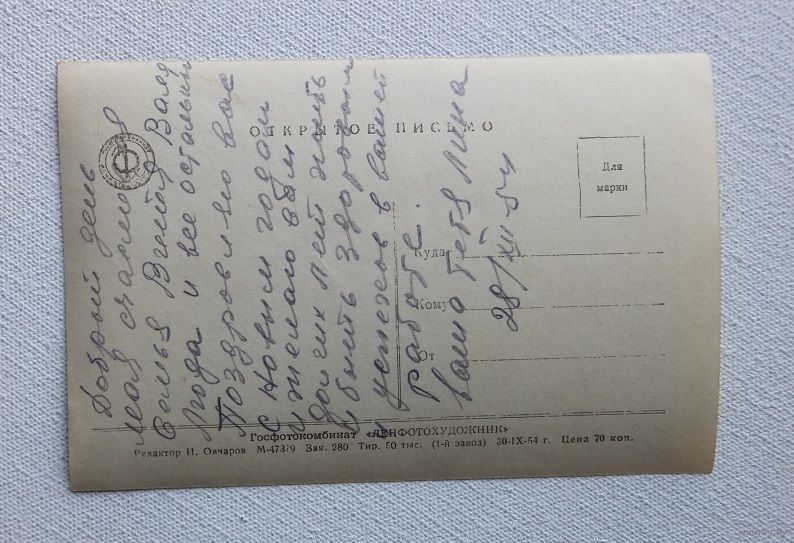 ОТКРЫТОЕ ПИСЬМО
Для
марки
Куда
Кому
От
Госфотокомбинат «ЛЕНФОТОХУДОЖНИК»
Редактор И. Овчаров М-47379 Зак. 280 Тир. 50 тыс. (1-й завод) 30-IX-54 г. Цена 70 коп.
Добрый день
моя
Валя
Люда и все остальные
Поздровляю вас
с Новым годом
и желаю вам
долгих лет жить
и быть здоровыми
и успехов в вашей
работе.
ваша тетя Лина
28/XII 54